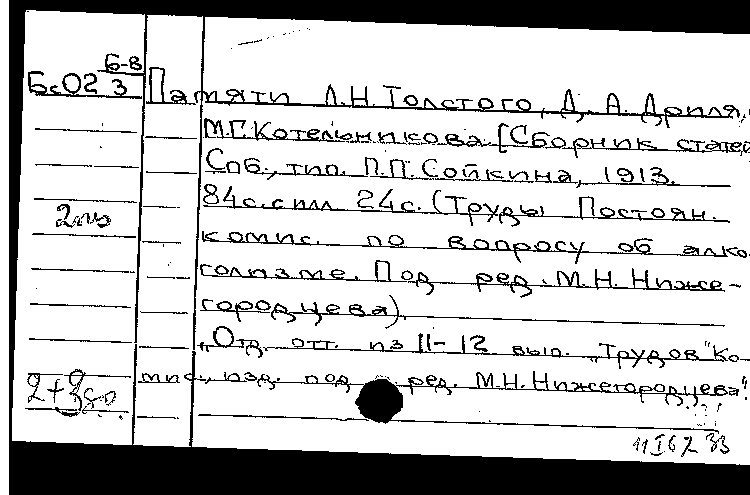 Б-8
БсО2 3
Памяти Л.Н.Толстого, Д. А. Дриля,
М.Г.Котельникова. [Сборник статей
Спб., тип. П.П.Сойкина, 1913.
84с.с илл 24с. (Труды Постоян.
комис. по вопросу об алко-
голизме. Под ред. М.Н. Ниже-
городцева).
„Отд. отт. из II-12 вып. „Трудов" Ко-
мис., изд. под ред. М.Н.Нижегородцева".